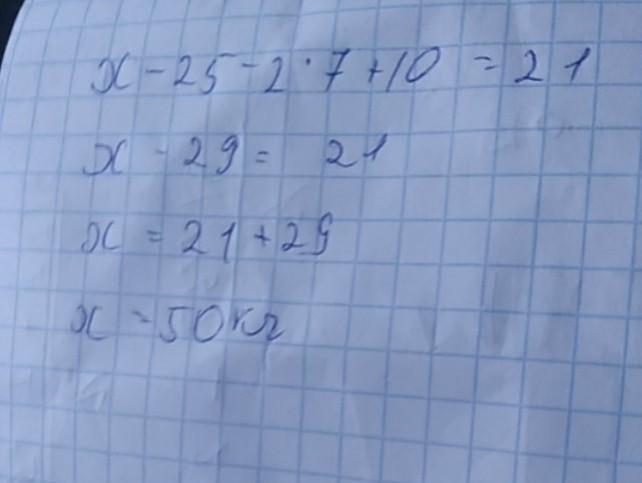 x - 25 - 2 · 7 + 10 = 21
x - 29 = 21
x = 21 + 29
x = 50 кг